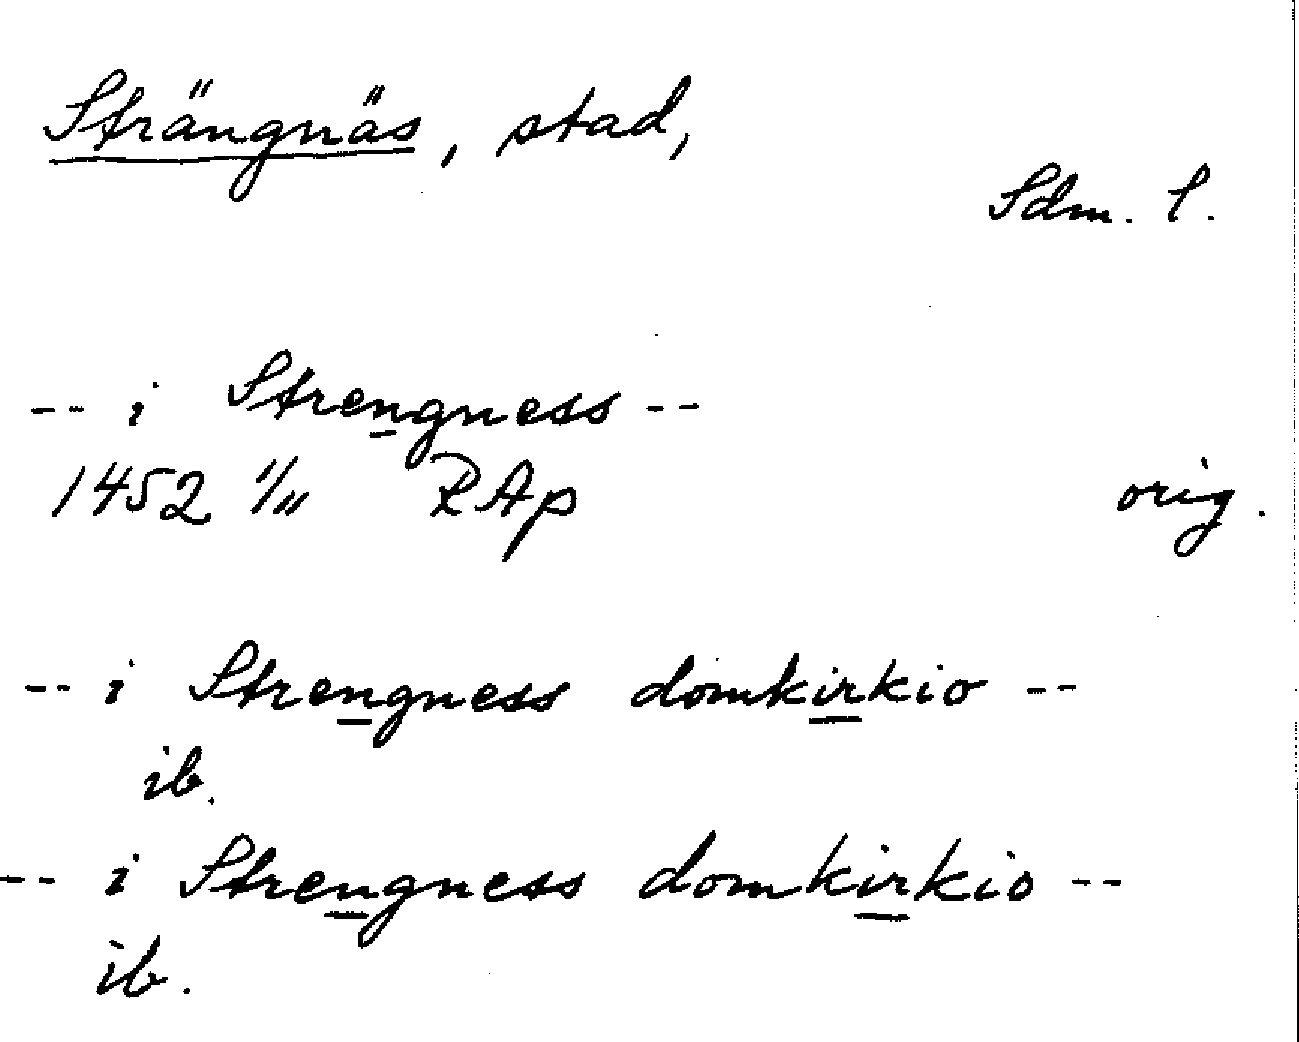 Strängnäs, stad,
Sdm. l.
-- i Strengness --
1452 1/11 RAp orig.
-- i Strengness domkirkio --
ib.
-- i Strengness domkirkio --
ib.